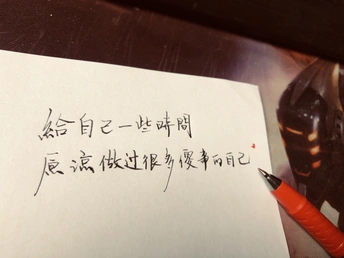 給自己一些時間
原諒做过很多傻事的自己